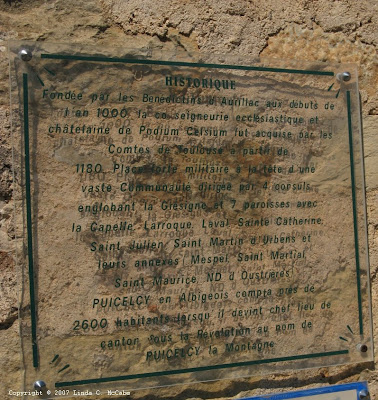 HISTORIQUE
Fondée par les Bénédictins d'Aurillac aux débuts de
l'an 1000, la co-seigneurie ecclésiastique et
châtelaine de Podium Celsium fut acquise par les
Comtes de Toulouse à partir de
1180. Place forte militaire à la tête d'une
vaste Communauté dirigée par 4 consuls
englobant la Grésigne et 7 paroisses avec
la Capelle, Larroque, Laval, Sainte Catherine,
Saint Julien, Saint Martin d'Urbens et
leurs annexes (Mespel, Saint Martial,
Saint Maurice, ND d'Oustrières)
PUICELCY en Albigeois compta près de
2600 habitants lorsqu'il devint chef lieu de
canton sous la Révolution au nom de
PUICELCY la Montagne
Copyright © 2007 Linda C. McCabe